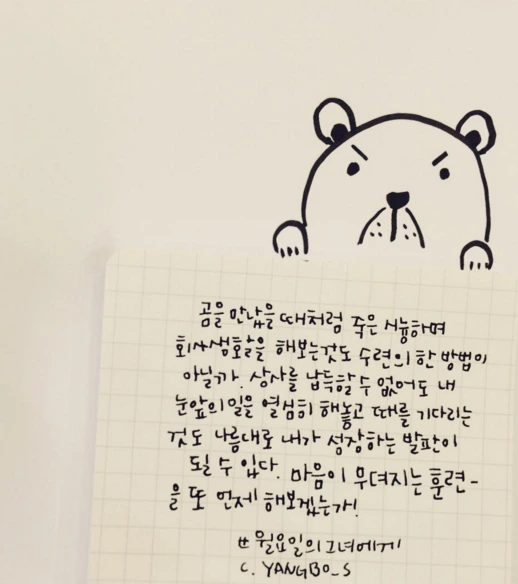 곰을 만났을 때처럼 죽은 시늉하며
회사생활을 해보는것도 수련의 한 방법이
아닐까. 상사를 납득할 수 없어도 내
눈앞의 일을 열심히 해놓고 때를 기다리는
것도 나름대로 내가 성장하는 발판이
될 수 있다. 마음이 무뎌지는 훈련-
을 또 언제 해보겠는가!
월요일의 그녀에게
C. YANGBO_S